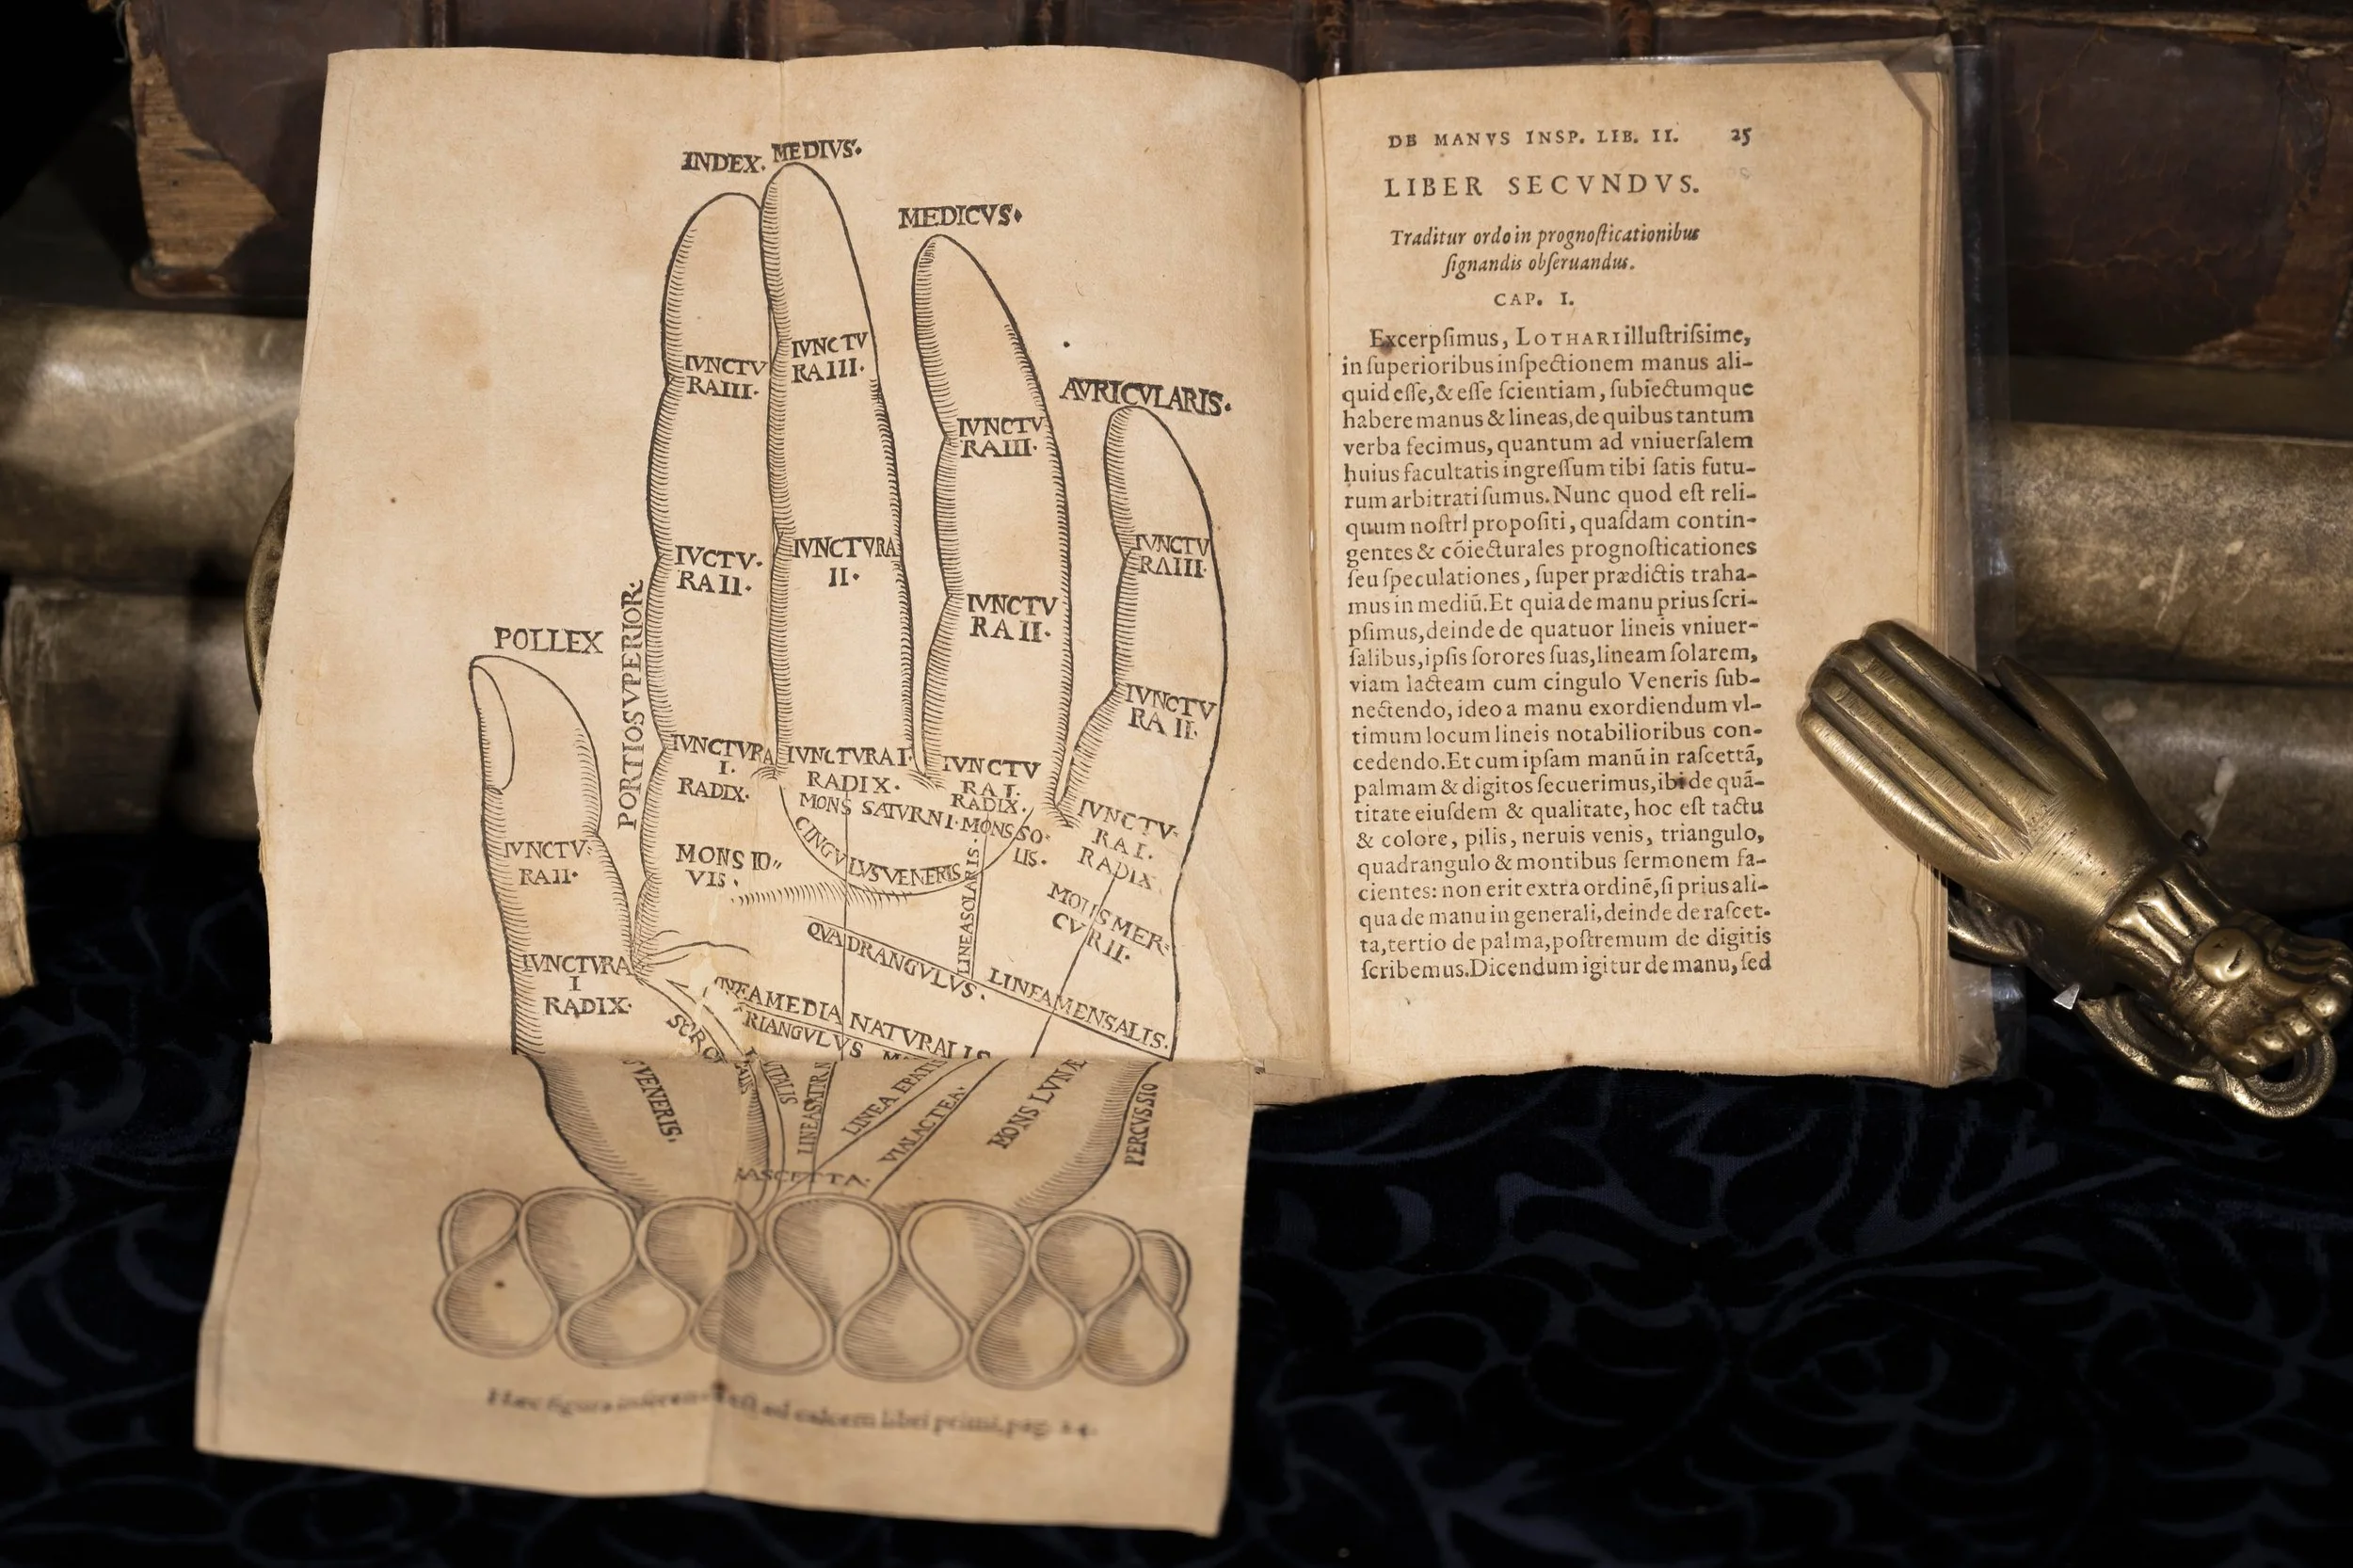 INDEX.
MEDIVS.
MEDICVS.
AVRICVLARIS.
POLLEX
PORTIO SVPERIOR.
IVNCTV
RA III.
IVNCTV
RA III.
IVNCTV
RA III.
IVNCTV
RA III.
IVCTV.
RA II.
IVNCTVRA
II.
IVNCTV
RA II.
IVNCTV
RA II.
IVNCTVRA
I.
RADIX.
IVNCTVRA I.
RADIX.
IVNCTV
RA I.
RADIX.
IVNCTV.
RA I.
RADIX
IVNCTV.
RA II.
IVNCTVRA
I
RADIX.
MONS SATVRNI.
MONS SO-
LIS.
CINGVLVS VENERIS
MONS IO„
VIS.
MONS MER-
CVRII.
LINEA SOLARIS.
QVADRANGVLVS.
LINEA MENSALIS.
MEDIA NATVRALIS
RIANGVLVS
VENERIS.
VITALIS
LINEA EPATIS
VIA LACTEA.
MONS LVNÆ
PERCVSSIO
RASCETTA.
Hæc figura inseren- est ad calcem libri primi, pag. 24.
DE MANVS INSP. LIB. II. 25
LIBER SECVNDVS.
Traditur ordo in prognoſticationibus
ſignandis obſeruandus.
CAP. I.
Excerpſimus, LOTHARI illuſtriſsime,
in ſuperioribus inſpectionem manus ali-
quid eſſe, & eſſe ſcientiam, ſubiectumque
habere manus & lineas, de quibus tantum
verba fecimus, quantum ad vniuerſalem
huius facultatis ingreſſum tibi ſatis futu-
rum arbitrati ſumus. Nunc quod eſt reli-
quum noſtri propoſiti, quaſdam contin-
gentes & cõiecturales prognoſticationes
ſeu ſpeculationes, ſuper prædictis traha-
mus in mediũ. Et quia de manu prius ſcri-
pſimus, deinde de quatuor lineis vniuer-
ſalibus, ipſis ſorores ſuas, lineam ſolarem,
viam lacteam cum cingulo Veneris ſub-
nectendo, ideo a manu exordiendum vl-
timum locum lineis notabilioribus con-
cedendo. Et cum ipſam manũ in raſcettã,
palmam & digitos ſecuerimus, ibi de quã-
titate eiuſdem & qualitate, hoc eſt tactu
& colore, pilis, neruis venis, triangulo,
quadrangulo & montibus ſermonem fa-
cientes: non erit extra ordinẽ, ſi prius ali-
qua de manu in generali, deinde de raſcet-
ta, tertio de palma, poſtremum de digitis
ſcribemus. Dicendum igitur de manu, ſed